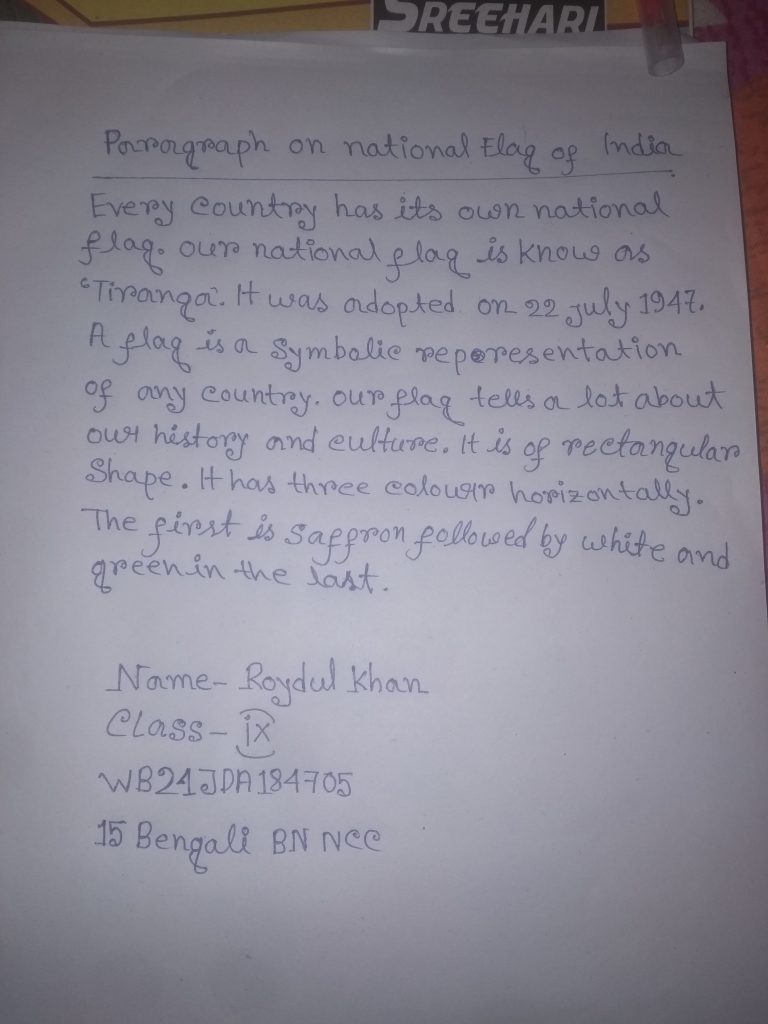 SREEHARI
Paragraph on national Flag of India
Every country has its own national
flag. our national flag is know as
'Tiranga'. It was adopted on 22 july 1947.
A flag is a symbolic reperesentation
of any country. our flag tells a lot about
our history and culture. It is of rectangular
Shape. It has three colour horizontally.
The first is saffron followed by white and
green in the last.
Name- Roydul Khan
Class- ix
WB24JDA184705
15 Bengali BN NCC